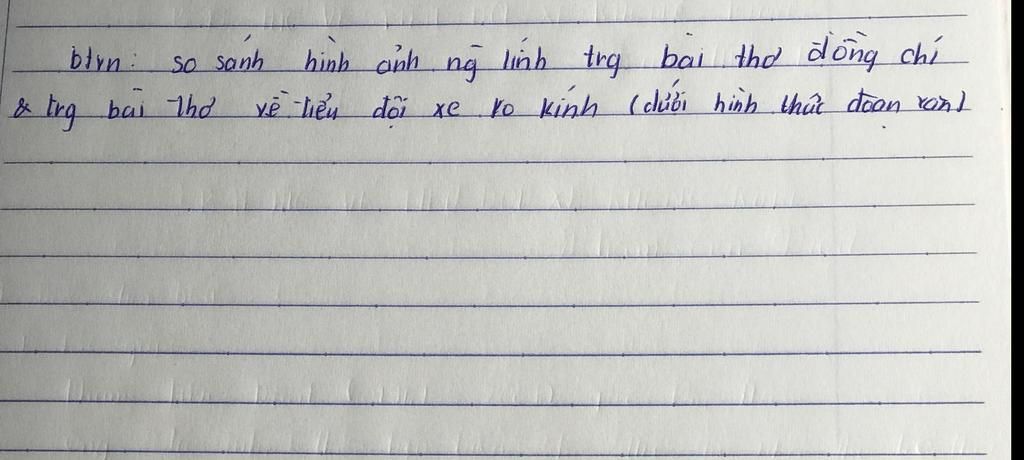 btvn: so sánh hình ảnh ng̃ lính trg bài thơ đồng chí
& trg bài thơ về tiểu đội xe ko kính (dưới hình thức đoạn văn)